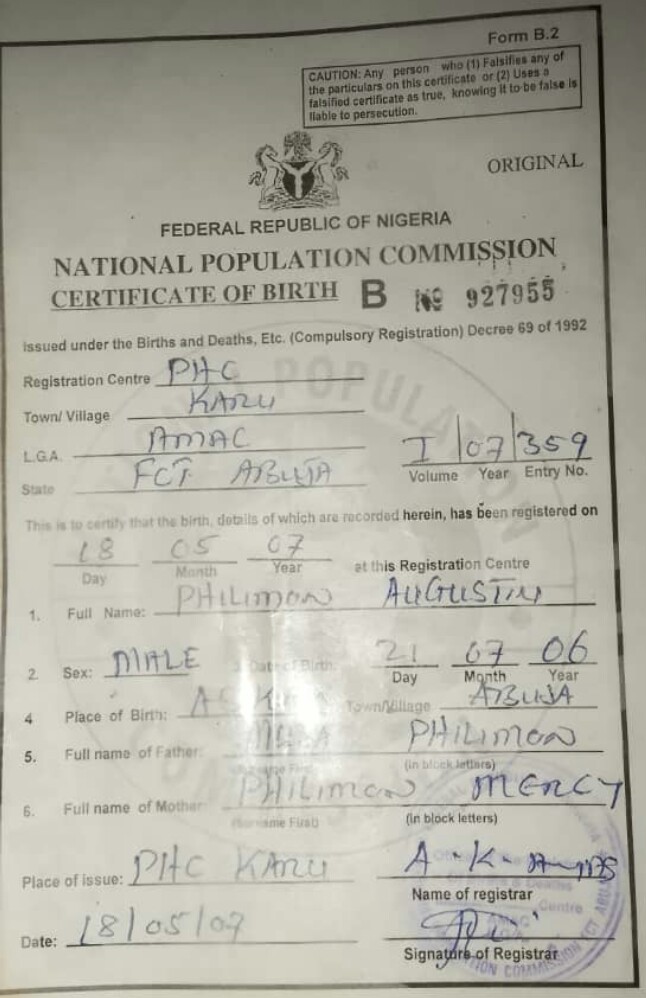 Form B.2
CAUTION: Any person who (1) Falsifies any of
the particulars on this certificate or (2) Uses a
falsified certificate as true, knowing it to be false is
liable to persecution.
ORIGINAL
FEDERAL REPUBLIC OF NIGERIA
NATIONAL POPULATION COMMISSION
CERTIFICATE OF BIRTH B No 927955
issued under the Births and Deaths, Etc. (Compulsory Registration) Decree 69 of 1992
Registration Centre PHC
Town/ Village KARU
L.G.A. AMAC
State FCT ABUJA
I /07/359
Volume Year Entry No.
This is to certify that the birth, details of which are recorded herein, has been registered on
18 05 07 at this Registration Centre
Day Month Year
1. Full Name: PHILIMON AUGUSTIN
2. Sex: MALE 3. Date of Birth: 21 07 06
Day Month Year
4 Place of Birth: Town/Village ABUJA
5. Full name of Father: PHILIMON
(in block letters)
6. Full name of Mother: PHILIMON MERCY
(Surname First) (in block letters)
Place of issue: PHC KARU A.K.
Name of registrar
Date: 18/05/07
Signature of Registrar